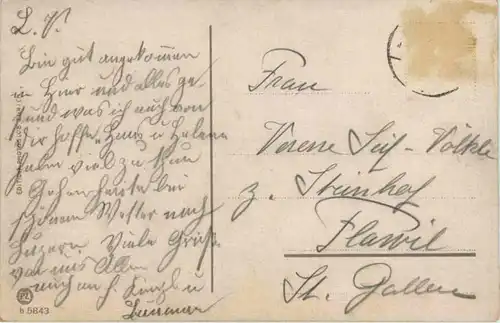 L. V.
Bin gut angekommen
in hier und alles ge-
sund was ich auch von
Dir hoffe. Hans u Helene
haben viel zu thun
Gehen heute bei
schönem Wetter nach
Luzern. Viele Grüße
von uns Allen
auch an H.
Frau
Verene - Völkle
z. Steinhof
Flawil
St. Gallen
PZ
b 5843